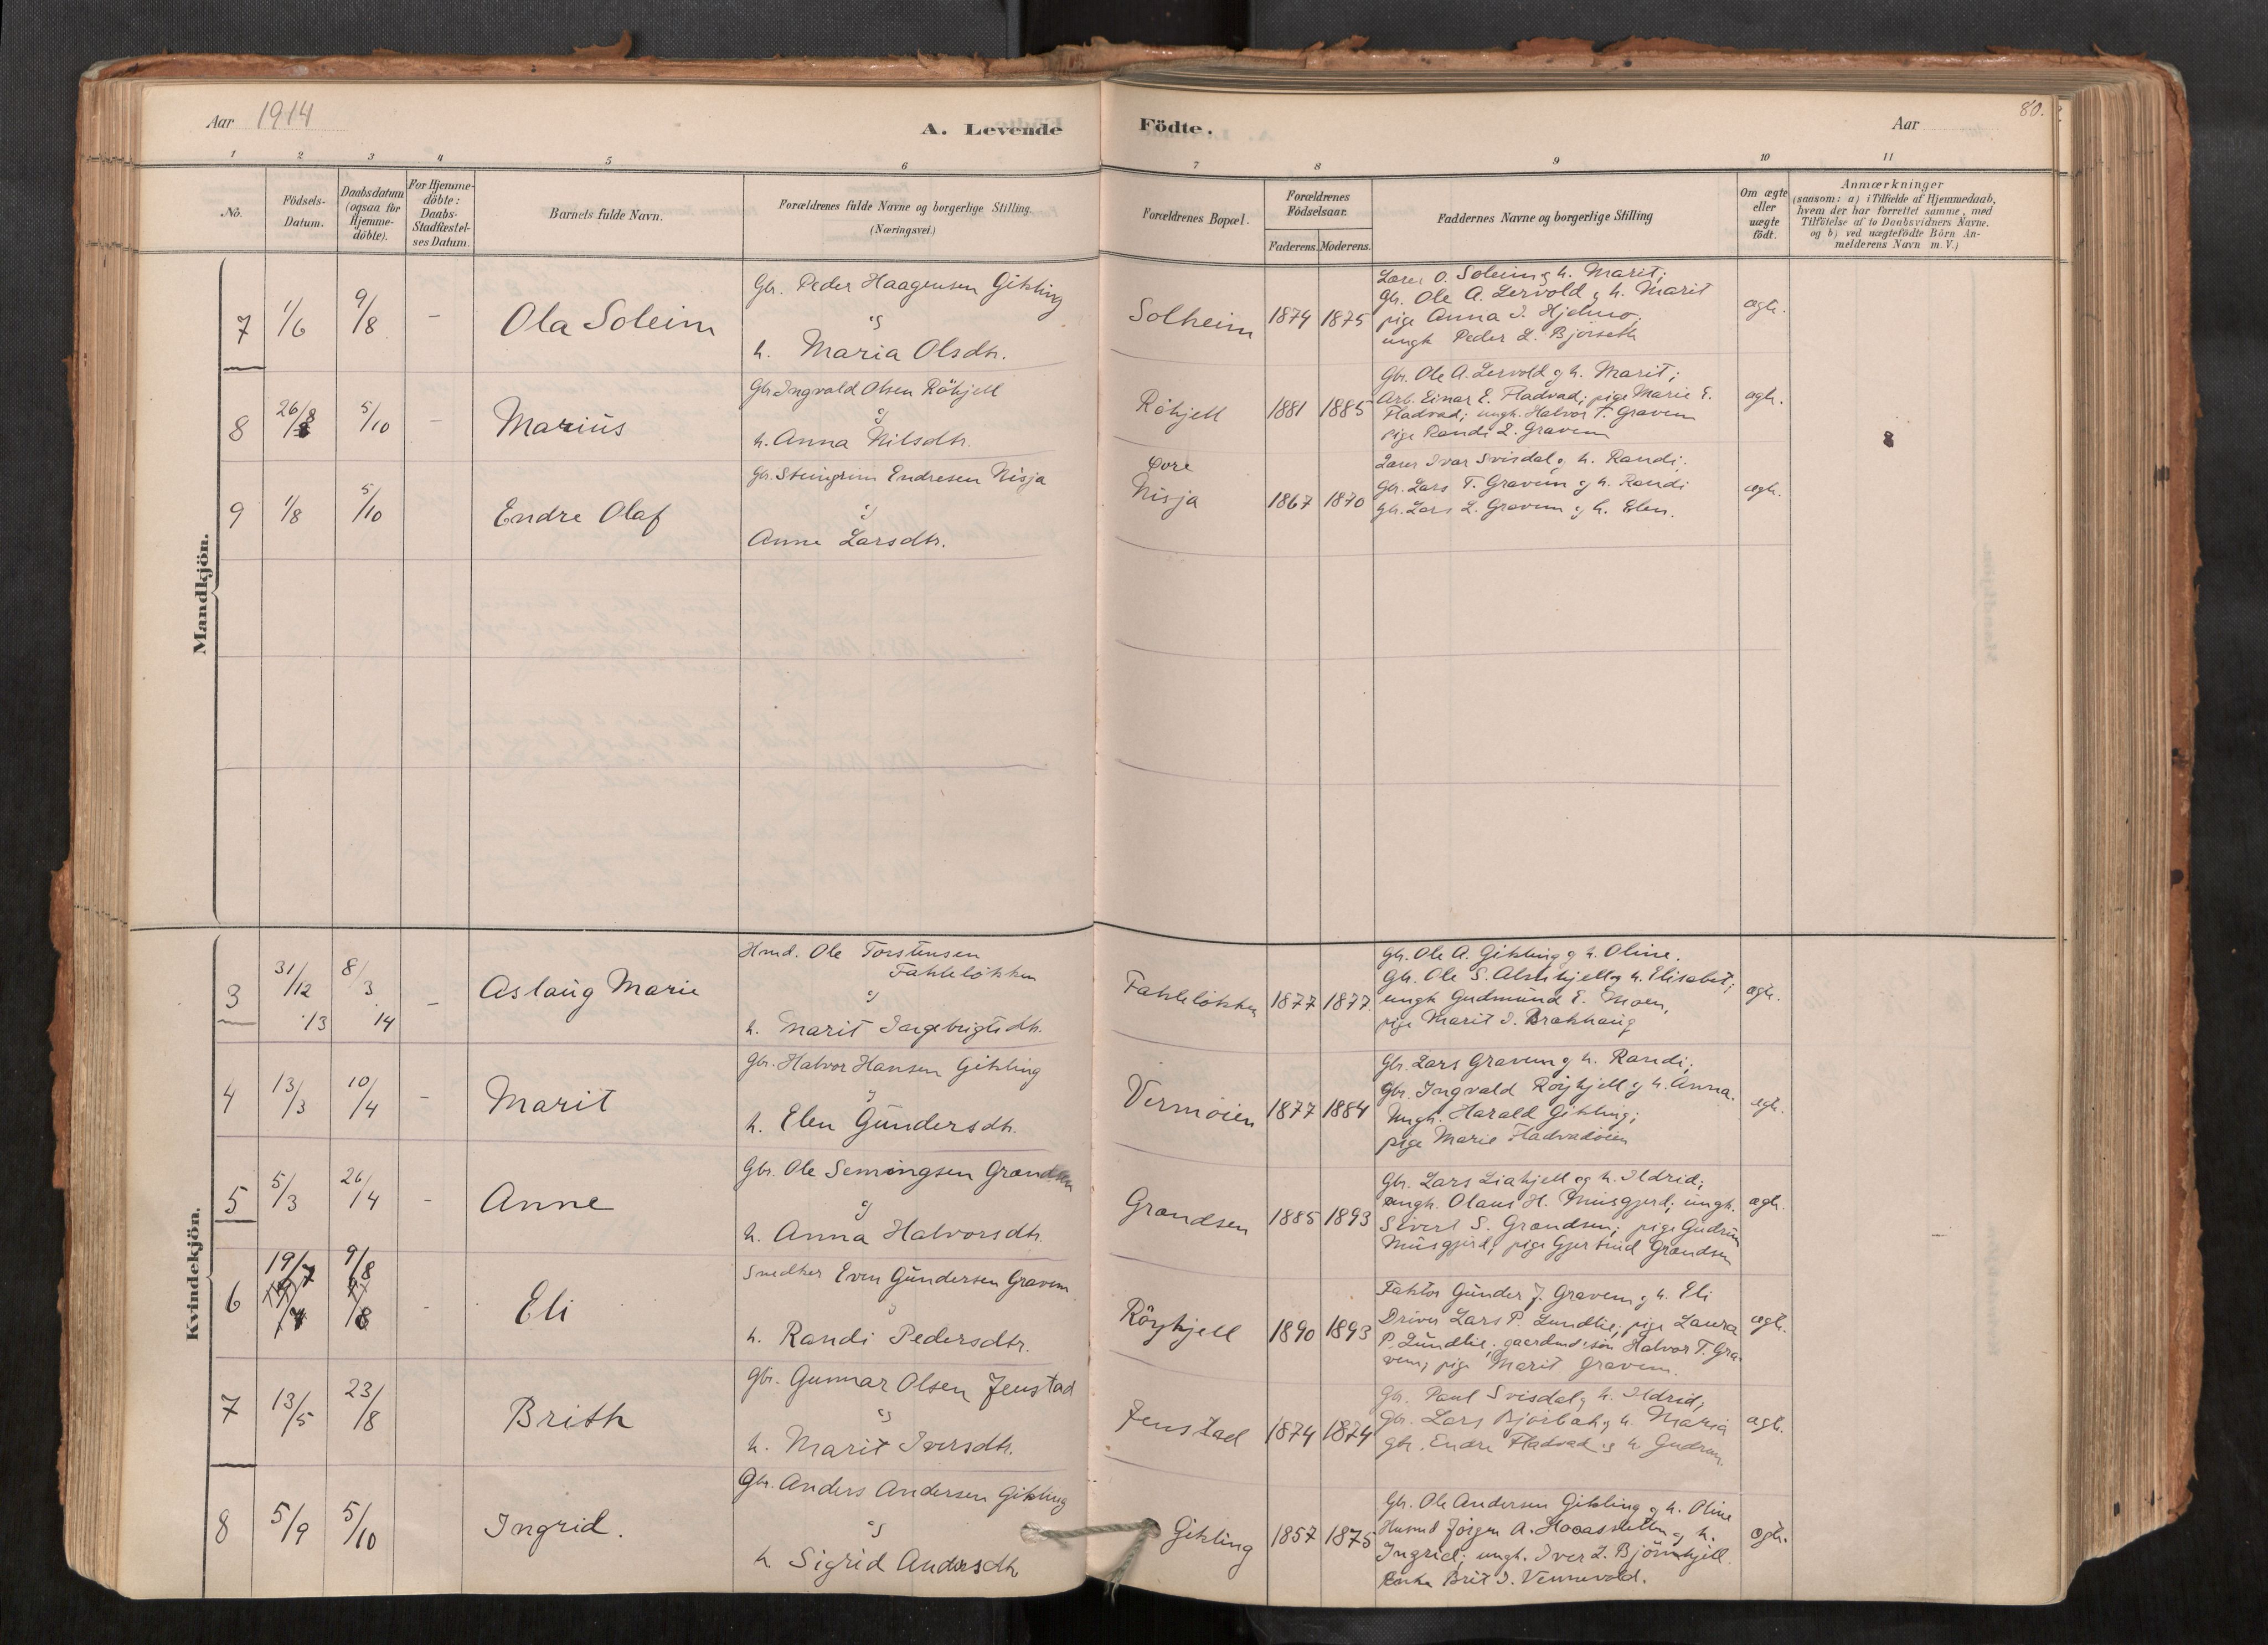 Aar 1914
A. Levende
Födte.
Aar
80.
1 2 3 4 5 6 7 8 9 10 11
No.
Födsels-
Datum.
Daabsdatum
(ogsaa for
Hjemme-
döbte).
For Hjemme-
döbte:
Daabs-
Stadfæstel-
ses Datum.
Barnets fulde Navn.
Forældrenes fulde Navne og borgerlige Stilling
(Næringsvei.)
Forældrenes Bopæl.
Forældrenes
Födselsaar.
Faderens. Moderens.
Faddernes Navne og borgerlige Stilling
Om ægte
eller
uægte
født.
Anmærkninger
(saasom: a) i Tilfælde af Hjemmedaab,
hvem der har forrettet samme, med
Tilföielse af to Daabsvidners Navne.
og b) ved uægtefödte Börn An-
melderens Navn m. V.)
Mandkjön.
7 1/6 9/8 - Ola Soleim
Gbr. Peder Haagensen Gikling
og
h. Maria Olsdtr.
Solheim 1874 1875
Lærer O. Soleim og h. Marit;
Gbr. Ole A. Lervold og h. Marit
pige Anna I. Hjelmo.
ungk Peder L. Bjørseth
ægte.
8 26/8 5/10 - Marius
Gbr. Ingvald Olsen Röhjell
og
h. Anna Nilsdtr.
Röhjell 1881 1885
Gbr. Ole A. Lervold og h. Marit;
Arb. Einar E. Fladvad; pige Marie E.
Fladvad; ungk. Halvor T. Gravem
pige Randi L. Gravem
ægte.
8
9 1/8 5/10 Endre Olaf
Gbr. Steingrim Endresen Nisja
og
Anne Larsdtr.
Øvre
Nisja 1867 1870
Lærer Ivar Svisdal og h. Randi.
Gbr. Lars T. Gravem og h. Randi
Gbr. Lars L. Gravem og h. Elen.
ægte.
Kvindekjön.
3 31/12 13 8/3 14 - Aslaug Marie
Hmd. Ole Torstensen
Fahleløkken
og
h. Marit Ingebrigtsdtr.
Fahleløkken 1877 1877.
Gbr. Ole A. Gikling og h. Oline.
Gbr. Ole S. Alskjell og h. Elisabet;
ungk Gudmund E. Moen,
pige Marit I. Brakhaug
ægte.
4 13/3 10/4 - Marit
Gbr. Halvor Hansen Gikling
og
h. Elen Gundersdtr.
Vermöien 1877 1884
Gbr. Lars Gravem og h. Randi;
Gbr. Ingvald Röyhjell og h. Anna.
Ungk. Harald Gikling;
pige Marie Fladvadöien
ægte.
5 5/3 26/4 - Anne
Gbr. Ole Semingsen Grandsen
og
h. Anna Halvorsdtr.
Grandsen 1885 1893
Gbr. Lars Liahjell og h. Ildrid;
ungk. Olaus H. Musgjerd; ungk.
Sivert S. Grandsen; pige Gudrun
Musgjerd; pige Gjertrud Grandsen
ægte.
6 19/7 9/8 - Eli
Snedker Even Gundersen Gravem
og
h. Randi Pedersdtr.
Röyhjell 1890 1893
Faktor Gunder J. Gravem og h. Eli
Driver Lars P. Lundlie; pige Laura
P. Lundlie; gaardmd'søn Halvor T. Gra-
vem; pige Marit Gravem.
ægte.
7 13/5 23/8 Brith
Gbr. Gunnar Olsen Jenstad
og
h. Marit Iversdtr.
Jenstad 1874 1874
Gbr. Paul Svisdal og h. Ildrid;
Gbr. Lars Bjørbak og h. Maria
Gbr. Endre Fladvad og h. Gudrun.
ægte.
8 5/9 5/10 Ingrid.
Gbr. Anders Andersen Gikling
og
h Sigrid Andersdtr
Gikling 1857 1875
Gbr. Ole Andersen Gikling og h. Oline
Husmd Jörgen A. Hoaasletten og h.
Ingrid; ungk. Iver L. Björnhjell.
Enke Brit I. Vennevold.
ægte.